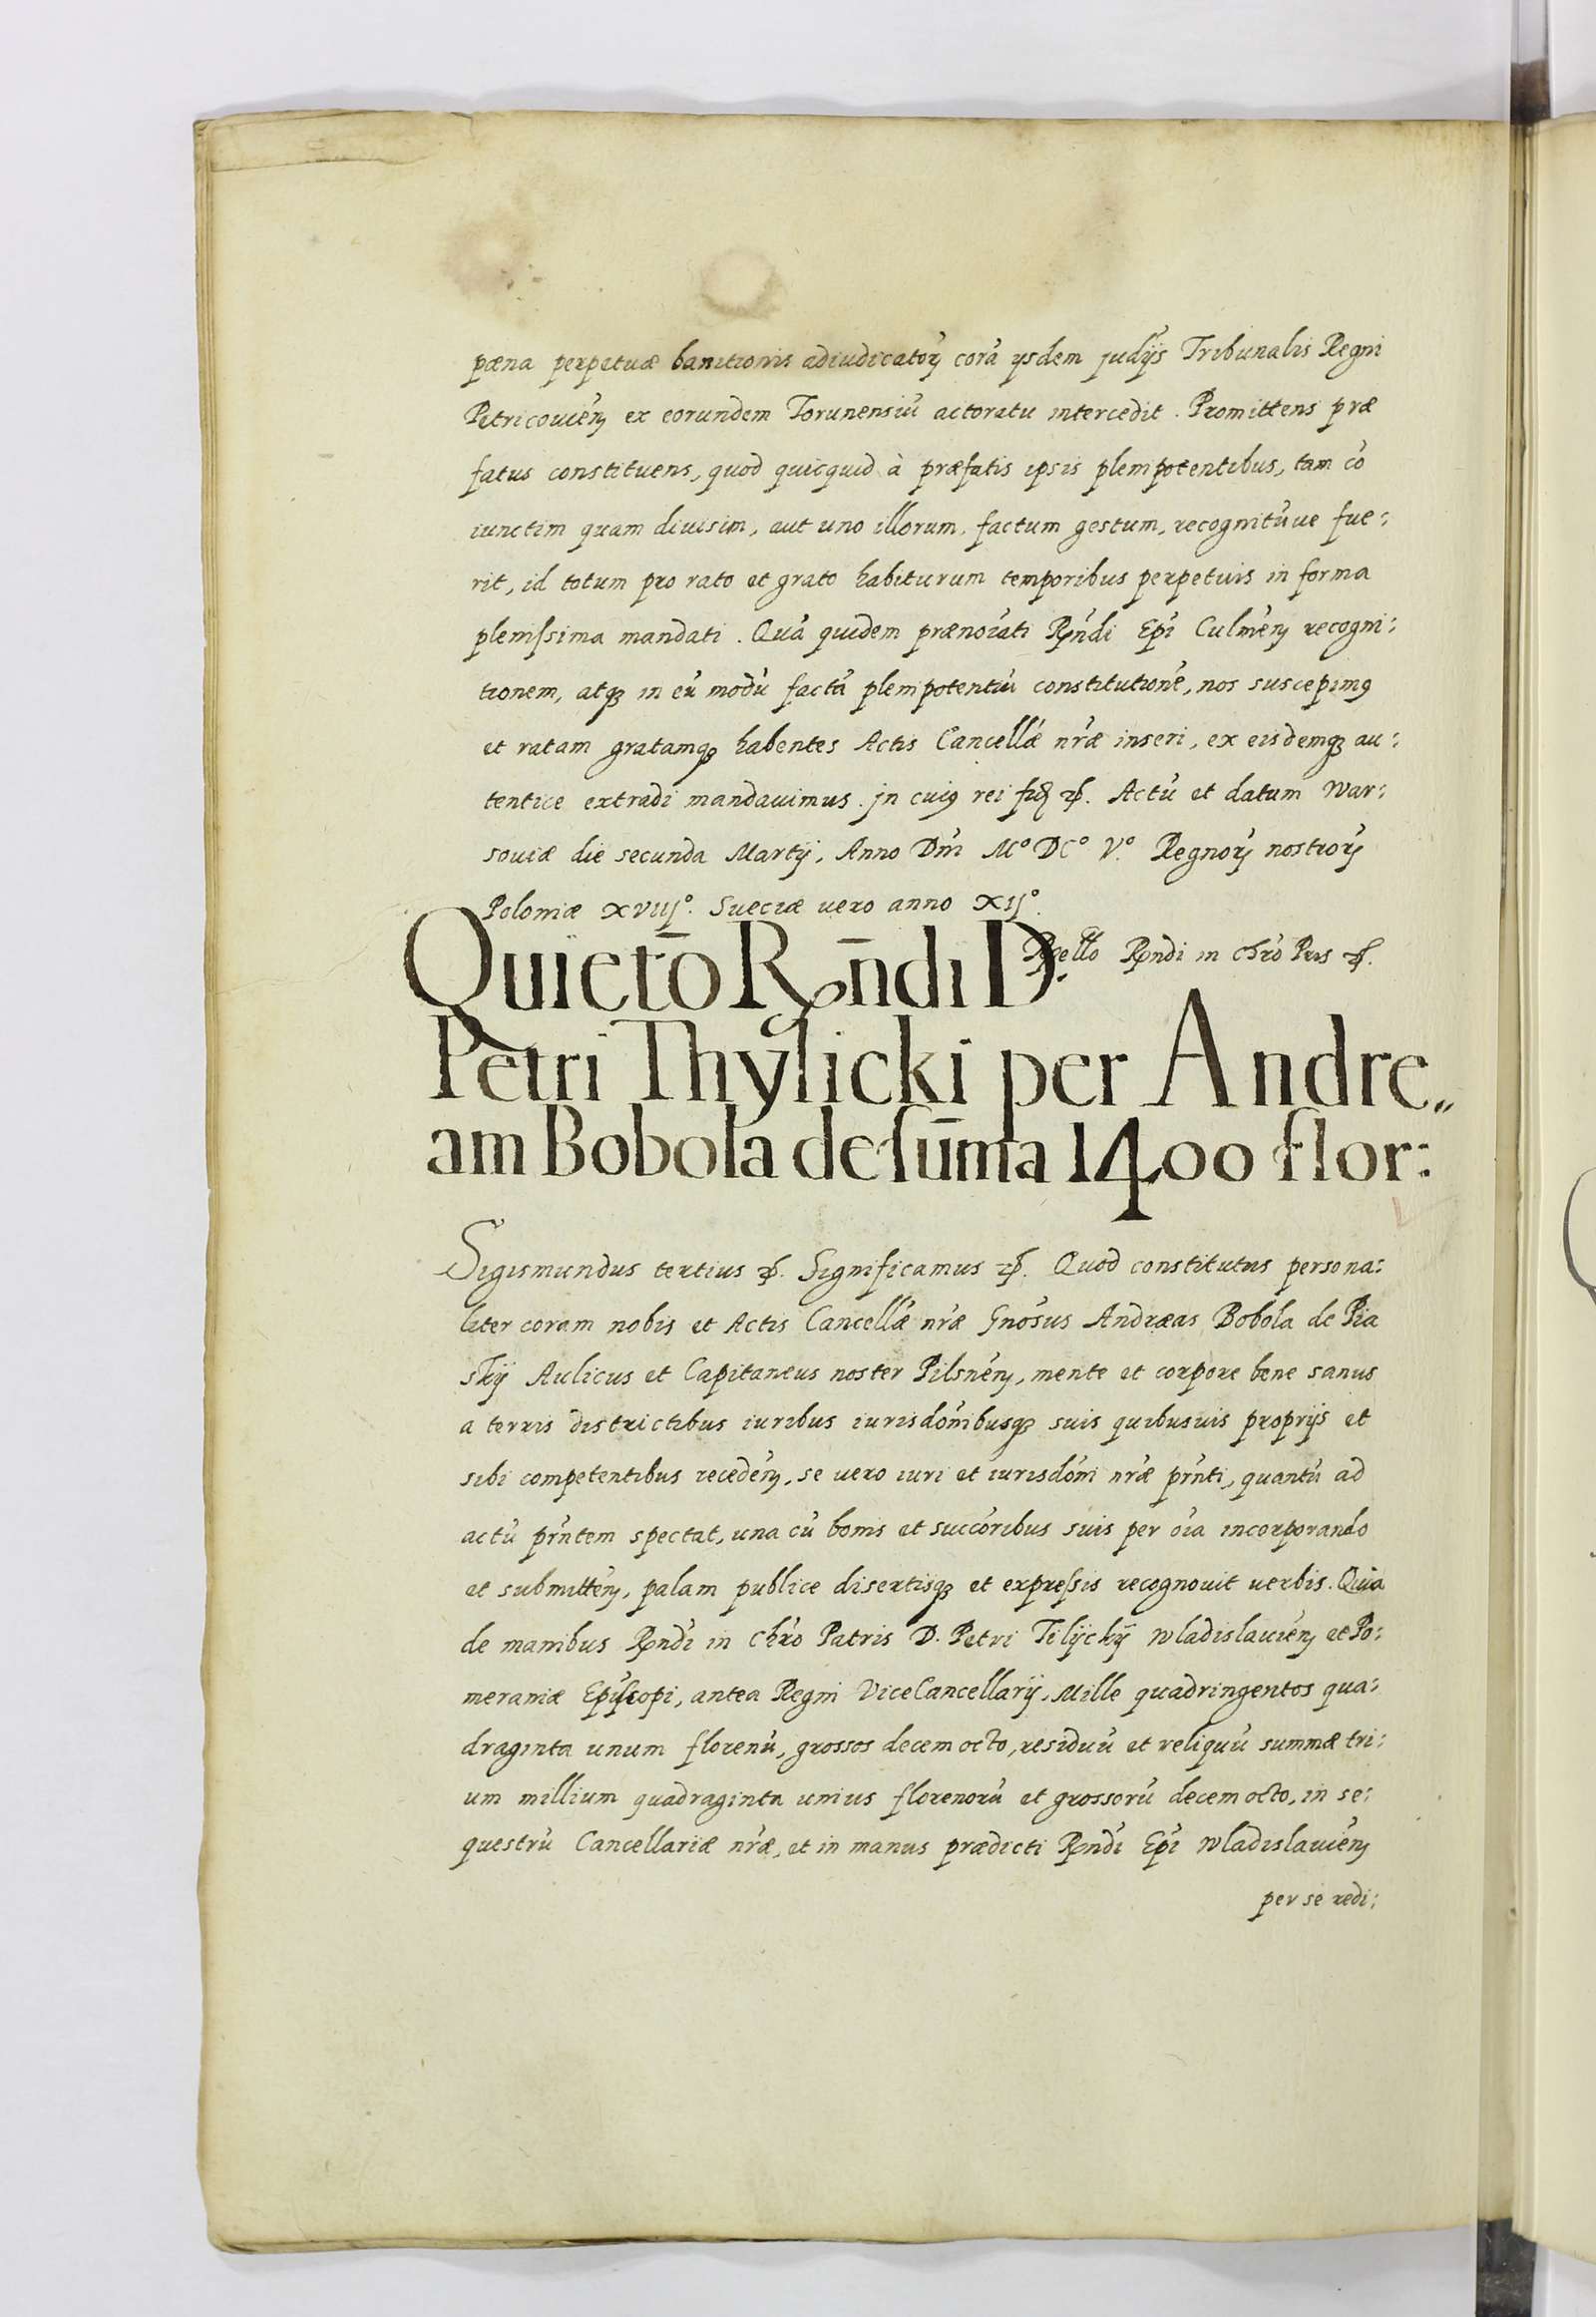 pæna perpetuæ banitionis adiudicatorꝝ corã ysdem judÿs Tribunalis Regni
Petricouien̄ ex eorundem Torunensiũ actoratu intercedit. Promittens præ
fatus constituens, quod quicquid à præfatis ipsis plenipotentibus, tam cõ
iunctim quam diuisim, aut uno illorum, factum gestum, recognitũue fue:
rit, id totum pro rato et grato habiturum temporibus perpetuis in forma
plenissima mandati. Quã quidem prænoĩati Rn̄di Epĩ Culmen̄ recogni:
tionem, atqꝫ in eũ modũ factã plenipotentiũ constitutionẽ, nos suscepimꝰ
et ratam gratamqꝫ habentes Actis Cancellæ nr̃æ inseri, ex eisdemqꝫ au:
tentice extradi mandauimus. jn cuiꝰ rei fidꝫ ꝛc̄. Actũ et datum War:
souiæ die secunda Martÿ, Anno Dñi M° DC° V.° Regnorꝝ nostrorꝝ
Poloniæ XVIIJ°. Sueciæ uero anno XIJ°.
Rcello Rn̄di in Chr̃o Pr̃is ꝛc̄.
Quietõ Rn̄di D.
Petri Thÿlicki per Andre„
am Bobola de sum̄a 1400 flor:
Sigismundus tertius ꝛc̄. Significamus ꝛc̄. Quod constitutus persona:
liter coram nobis et Actis Cancellæ nr̃æ Gnõsus Andræas Bobola de Pia
skÿ Aulicus et Capitaneus noster Pilsnen̄, mente et corpore bene sanus
a terris districtibus iuribus iurisdõnibusqꝫ suis quibusuis proprÿs et
sibi competentibus receden̄, se uero iuri et iurisdõni nr̃æ pr̃nti, quantũ ad
actũ pr̃ntem spectat, una cũ bonis et succõribus suis per oĩa incorporando
et submitten̄, palam publice disertisqꝫ et expressis recognouit uerbis. Quia
de manibus Rn̄di in Chr̃o Patris D. Petri Tilÿckÿ Wladislauien̄ et Po:
meraniæ Episcopi, antea Regni ViceCancellarÿ, Mille quadringentos qua:
draginta unum florenũ, grossos decem octo, residuũ et reliquũ summæ tri:
um millium quadraginta unius florenorũ et grossorũ decem octo, in se:
questrũ Cancellariæ nr̃æ, et in manus prædicti Rn̄di Epĩ Wladislauien̄
per se redi: